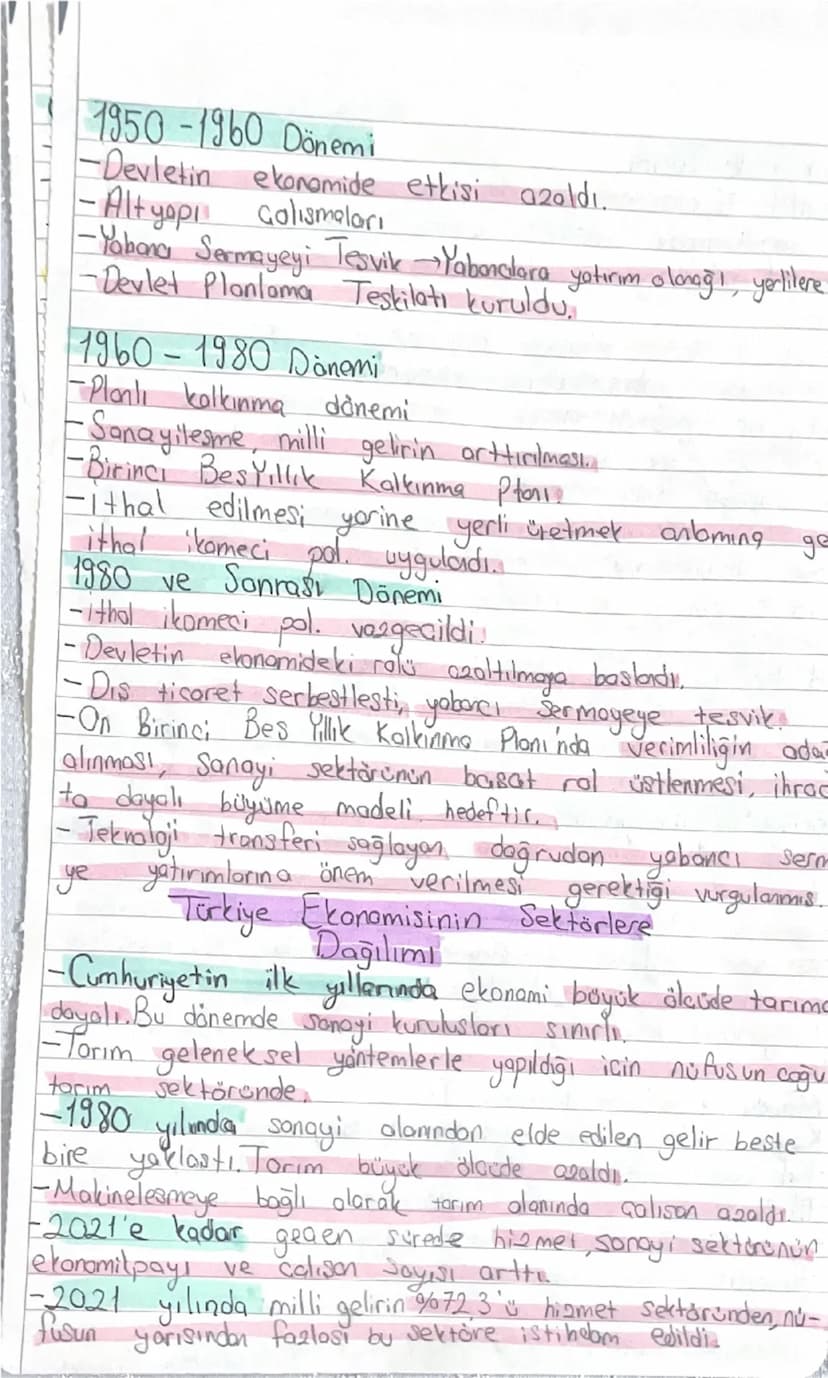 1950-1960 Dönemi
-Devletin ekonomide etkisi azaldı.
-Altyapı Calısmaları
-Yabancı Sermayeyi Tesvik →Yabancılara yatırım olanağı, yerlilere
-Devlet Planlama Teskilatı kuruldu.
1960-1980 Dönemi
-Planlı kalkınma dönemi
-Sanayilesme, milli gelirin arttırılması.
-Birinci BesYıllık Kalkınma Planı.
-ithal edilmesi yerine yerli üretmek anlamına ge
ithal ikameci pol. uygulandı.
1980 ve Sonrası Dönemi
-ithal ikameci pol. vazgecildi.
-Devletin ekonomideki rolü azaltılmaya baslandı.
-Dıs ticaret serbestlesti, yabancı Sermayeye tesvik.
-On Birinci Bes Yıllık Kalkınma Planı'nda verimliliğin odağ
alınması, Sanayi sektörünün basat rol üstlenmesi, ihrac
ta dayalı büyüme modeli hedeftir.
-Teknoloji transferi sağlayan doğrudan yabancı serm
ye yatırımlarına önem verilmesi gerektiği vurgulanmıs.
Türkiye Ekonomisinin Sektörlere
Dağılımı
-Cumhuriyetin ilk yıllarında ekonomi büyük ölcüde tarıma
dayalı. Bu dönemde sanayi kurulusları sınırlı.
-Tarım geleneksel yöntemlerle yapıldığı icin nüfusun coğu
tarım sektöründe.
-1980 yılında sanayi alanından elde edilen gelir beste
bire yaklastı. Tarım büyük ölcüde azaldı.
-Makinelesmeye bağlı olarak tarım alanında calısan azaldı.
-2021'e kadar gecen sürede hizmet, sanayi sektörünün
ekonomik payı ve calısan sayısı arttı.
-2021 yılında milli gelirin %72 3'ü hizmet sektöründen, nü-
fusun yarısından fazlası bu sektöre istihdam edildi.